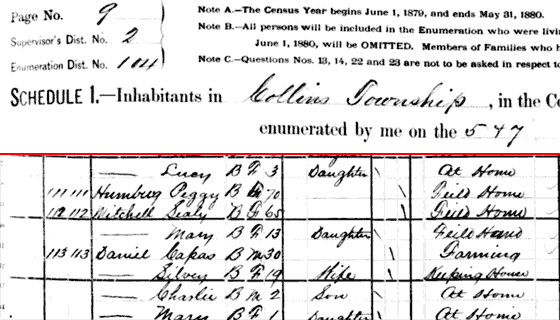 Page No. 9
Supervisor's Dist. No. 2
Enumeration Dist. No. 104
Note A.—The Census Year begins June 1, 1879, and ends May 31, 1880.
Note B.—All persons will be included in the Enumeration who were livi
June 1, 1880, will be OMITTED. Members of Families who h
Note C.—Questions Nos. 13, 14, 22 and 23 are not to be asked in respect to
SCHEDULE 1.—Inhabitants in Collins Township, in the Co
enumerated by me on the 5 & 7
— Lucy B F 3 Daughter \ At Home
111 111 Humburg Peggy B F 70 Feild Home
112 112 Mitchell Sealy B F 65 \ Feild Home
— Mary B F 13 Daughter \ Feild Hand
113 113 Daniel Capas B M 30 \ Farming
— Silvey B F 19 Wife \ Keeping House
— Charlie B M 2 Son \ At Home
— Mary B F 1 Daughter \ At Home